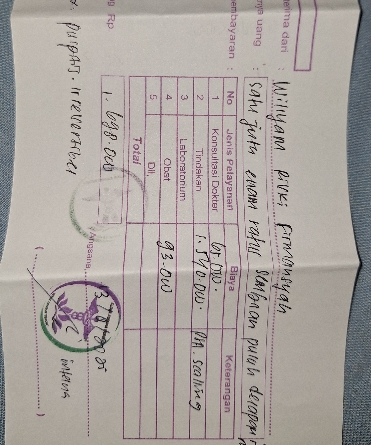 erima dari : Willyam Rizki Firmansyah
nya uang : Satu juta enam ratus sembilan puluh delapan
embayaran :
No Jenis Pelayanan Biaya Keterangan
1 Konsultasi Dokter 65.000.
2 Tindakan 1.540.000.
3 Laboratorium
4 Obat 93.000
5 Dll,
Total
g Rp 1.698.000
Angsana
pulpitis irreversibel
( )